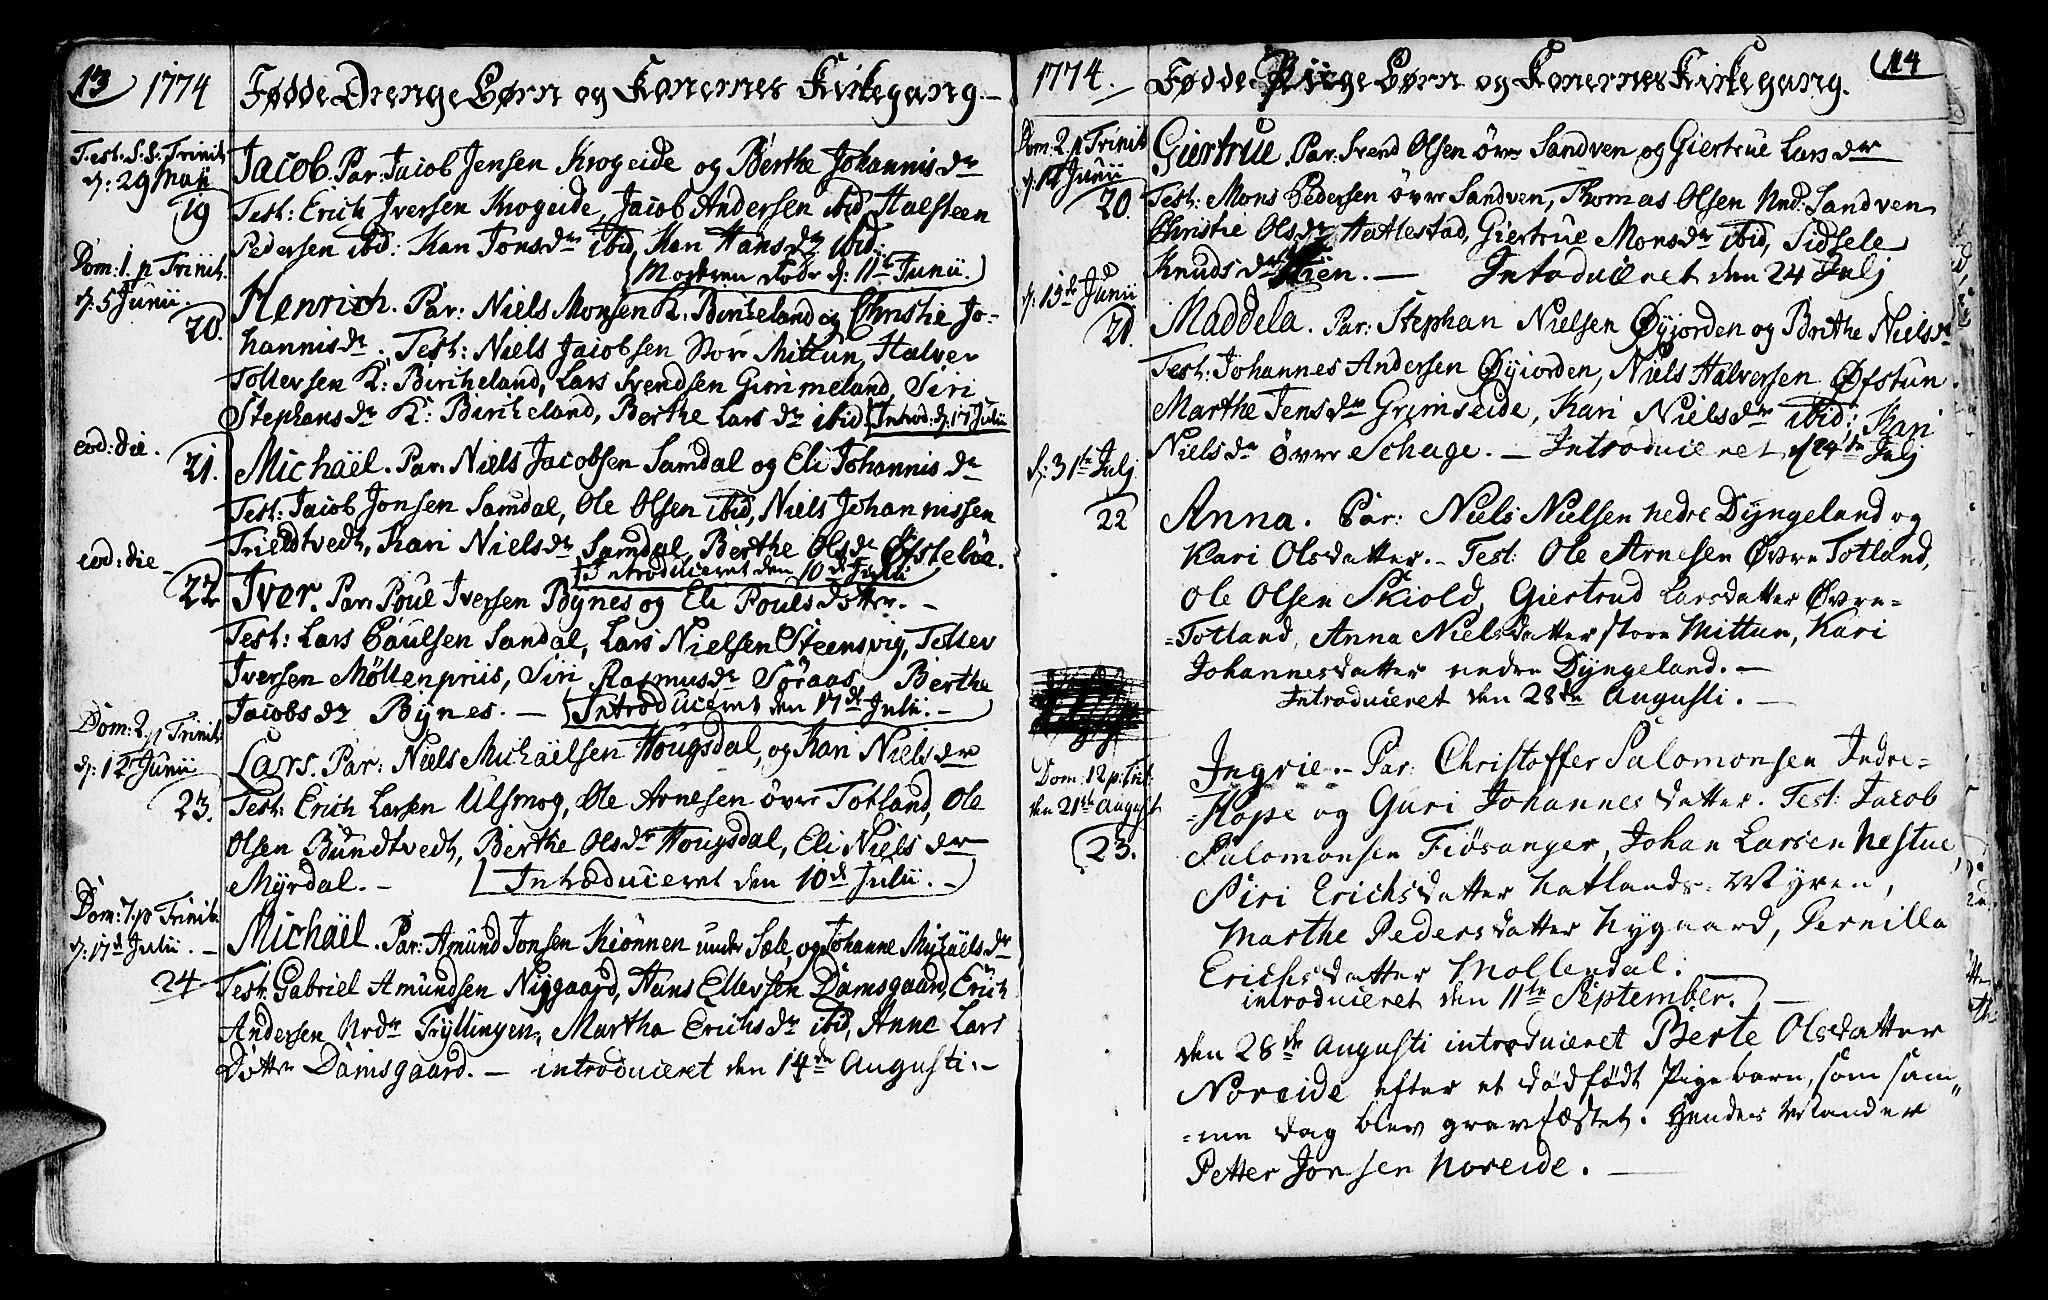 13 1774 Fødde Drenge Børn og Konernes Kirkegang.
Fest: S.S. Trinit:
d: 29 Maji
19
Jacob. Par: Jacob Jensen Krogeide og Berthe Johannis dr
Test: Erich Iversen Krogeide, Jacob Andersen ibid, Halsteen
Pedersen ibid: Kari Jonsdr ibid, Kari Hansdr ibid:
Moderen døde d: 11te Junii.
Dom: 1. p Trinit.
d: 5 Junii.
20.
Henrich. Par: Niels Monsen K. Bircheland og Christie Jo-
hannisdr. Test: Niels Jacobsen Stor Mittun, Halver
Tollevsen K: Bircheland, Lars Svendsen Gimmeland, Siri
Stephansdr K: Bircheland, Berthe Lars dr ibid. Introd: d: 17 Julii
eod: die.
21.
Michaël. Par: Niels Jacobsen Samdal og Eli Johannis dr
Test: Jacob Jonsen Samdal, Ole Olsen ibid, Niels Johannissen
Trieldtvedt, Kari Nielsdr Samdal, Berthe Olsdr Østebøe.
Introduceret den 10de Julii
eod: die
22
Iver. Par: Poul Iversen Bynes og Eli Pouls dotter. -
Test: Lars Paulsen Sandal, Lars Nielsen Steensvig, Tollev
Iversen Møllenpriis, Siri Rasmusdr Søraas, Berthe
Jacobs dr Bynes. - Introduceret den 17de Julii. -
Dom: 2. p Trinit
d: 12 Junii
23.
Lars. Par: Niels Michaëlsen Hougsdal, og Kari Niels dr
Test: Erich Larsen Ulsmog, Ole Arnesen øvre Totland, Ole
Olsen Bundtvedt, Berthe Olsdr Hougsdal, Eli Niels dr
Myrdal. - Introduceret den 10de Julii. -
Dom: 7. p Trinit
d: 17de Julii. -
24
Michaël. Par: Amund Jonsen Kiønnen under Sæle, og Johanne Michaëls dr
Test: Gabriel Amundsen Nygaard, Hans Ellevsen Damsgaard, Erich
Andersen Nedr Fyllingen, Martha Erichs dr ibid, Anne Lars
Dotter Damsgaard. - introduceret den 14de Augusti. -
1774. Fødde Piige Børn og Konernes Kirkegang. 14
Dom: 2 p Trinit
d: 12 Junii
20.
Giertrue. Par: Svend Olsen øvre Sandven og Giertrue Lars dr
Test: Mons Pedersen øvre Sandven, Thomas Olsen Ned: Sandven
Christie Olsdr Hatlestad, Giertrue Monsdr ibid, Sidsele
Knuds dr. - Introduceret den 24 Julj
d: 19de Junii
21.
Maddela. Par: Stephan Nielsen Øyjorden og Brithe Nielsdr
Test: Johannes Andersen Øyiorden, Niels Halversen Øfstun.
Marthe Jensdr Grimseide, Kari Nielsdr ibid: Kari
Nielsdr øvre Schage. - Introduceret d 24de Julj
d: 31te Julj
22
Anna. Par: Niels Nielsen nedre Dyngeland og
Kari Olsdatter. - Test: Ole Arnesen Øvre Totland,
Ole Olsen Skiold, Giertrud Larsdatter Øvre=
=Totland, Anna Nielsdatter store Mittun, Kari
Johannesdatter nedre Dyngeland. -
Introduceret den 28de Augusti. -
Dom: 12 p: Trit.
den 21te August
23.
Ingrie. - Par: Christoffer Salomonsen Indre=
=Hope og Guri Johannesdatter. Test: Jacob
Salomonsen Fiøsanger, Johan Larsen Nestue,
Siri Erichsdatter Hatlands=Myren,
Marthe Pedersdatter Nygaard, Pernilla
Erichsdatter Mollendal.
introduceret den 11te September. -
den 28de Augusti introduceret Berte Olsdatter
Noreide efter et dødfødt Pigebarn, som sam„
=me dag blev gravfæstet. Hendes Mand er
Petter Jonsen Noreide. -